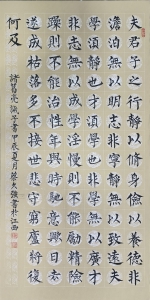 夫君子之行靜以修身儉以養德非
澹泊無以明志非寧靜無以致遠夫
學須靜也才須學也非學無以廣才
非志無以成學淫慢則不能勵精險
躁則不能治性年與時馳意與日去
遂成枯落多不接世悲守窮廬將復
何及
諸葛亮誡子書甲辰夏月蔡大強書於江西